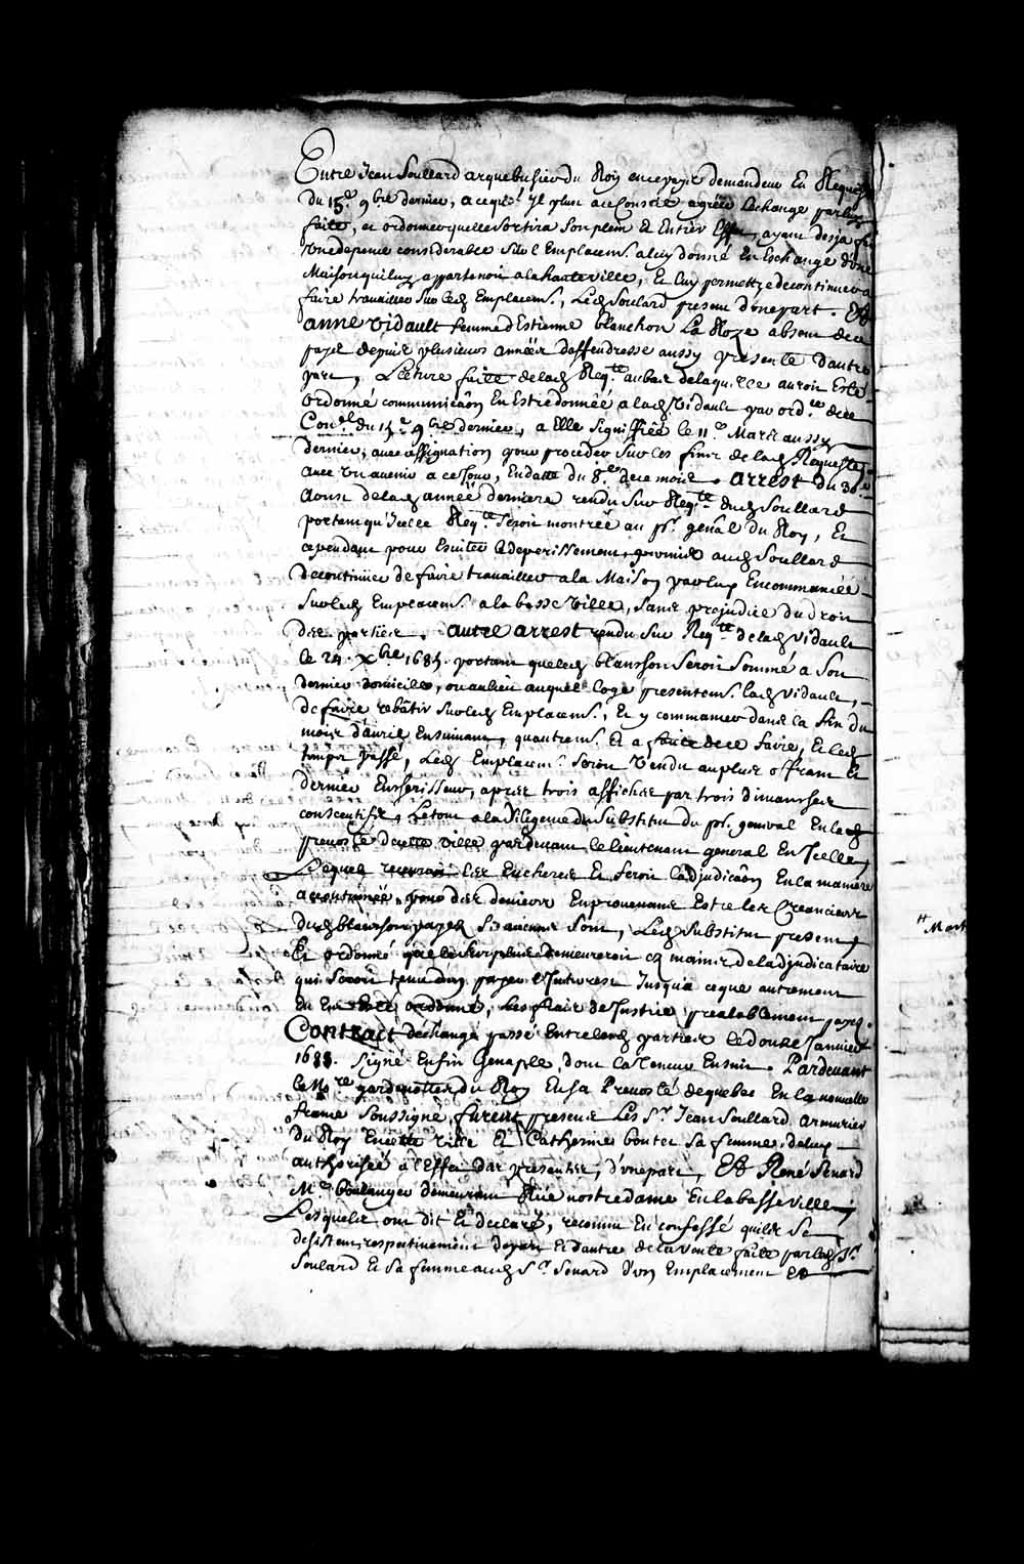 Entre Jean Soullard arquebusier du Roy en ce pays demandeur En Reques
du 15.e 9bre dernier, a ce qu'il yl plust au Conseil agréer Leschange par luy
faite, et ordonner quelle sortira son plein Et Entier Effet, ayant desja fa
vne depense considerable sur l'Emplacem.t a luy donné En Eschange d'vne
Maison qui luy appartenoit a la haute ville, Et luy permettre de continuer a
faire travailler sur led Emplacem.t, Led Soulard present d'vne part. Et
anne Vidault femme d'Estienne blanchon La Roze absent de ce
pays depuis plusieurs années deffendresse aussy presente d'autre
part, Lecture faite de lad Req.te au bas de laquelle auroit Esté
ordonné communicaõn En Estre donnée a lad Vidault par ord.ce de ce
Con.el du 15.e 9bre dernier, a Elle signiffiée le 11.e Mars aussy
dernier, auec assignation pour proceder sur les fins de lad Requeste
auec vn auenir a ce Jour, En datte du 8.e de ce mois. arrest du 30.e
aoust de lad année derniere rendu sur Req.te dud Soullard
portant qu'Icelle Req.te seroit montrée au pr. genãl du Roy, Et
cependant pour Esuiter le deperissement, permis aud Soullard
de continüer de faire trauailler a la Maison par luy Encommancée
sur led Emplacem.t a la basse ville, sans prejudice du droit
des parties. autre arrest rendu sur Req.te de lad Vidault
le 24. Xbre 1685. portant que led blansson seroit sommé a son
dernier domicille, ou au lieu auquel loge presentem.t lad Vidault,
de faire rebâtir sur led Emplacem.t, Et y commancer dans la fin du
mois d'auril Ensuiuant, autrem.t Et a faute de ce faire, Et led
temps passé, Led Emplacem.t seroit Vendu au plus offrant Et
dernier Encherisseur, apres trois affiches par trois dimanches
consecutifs, Le tout a la diligence du substitut du pr. general En lad
preuosté de cette ville pardeuant le lieutenant general En Icelle,
Lequel receuroit les Encheres Et feroit l'adjudicaõn En la maniere
accoutumée, pour des deniers En prouenans Estre les Creanciers
dud blansson payez Led substitut present,
Et ordonné que le surplus demeureroit Es mains de l'adjudicataire
qui seroit tenu d'en payer l'Interest Jusqu'a ce que autrement
En Eut Esté ordonné, Les frais de Justice prealablement payez.
Contract d'eschange passé Entre lesd parties le douze Januier
1685. signé Enfin Genaple, dont la teneur Ensuit. Pardeuant
le No.re gardenottes du Roy En sa Preuosté de quebec En la nouuelle
france soussigné, furent presens Les S.r Jean Soullard armurier
du Roy En cette ville Et Catherine boutet sa femme, de luy
authorisée a l'Effet des presentes, d'vne part, Et René Senard
M.e boulanger demeurant Rüe nostre dame En la basse ville,
Lesquels ont dit Et declaré, reconnu Et confessé qu'ils se
desistent, respectiuement de part Et d'autre de la vente faite par led S.r
Soulard Et sa femme aud S.r Senard d'vn Emplacement Et